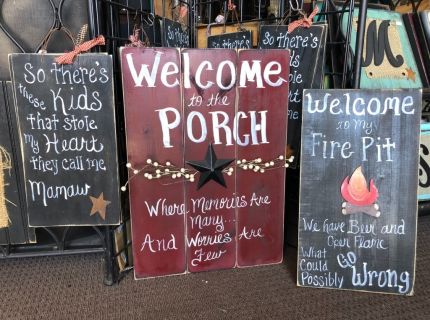 So there's
these Kids
that stole
my Heart
they call me
Mamaw
Welcome
to the
PORCH
Where Memories Are
Many...
And Worries Are
Few
Welcome
to My
Fire Pit
We have Beer and
Open Flame
What
Could GO
Possibly Wrong
So there's
M